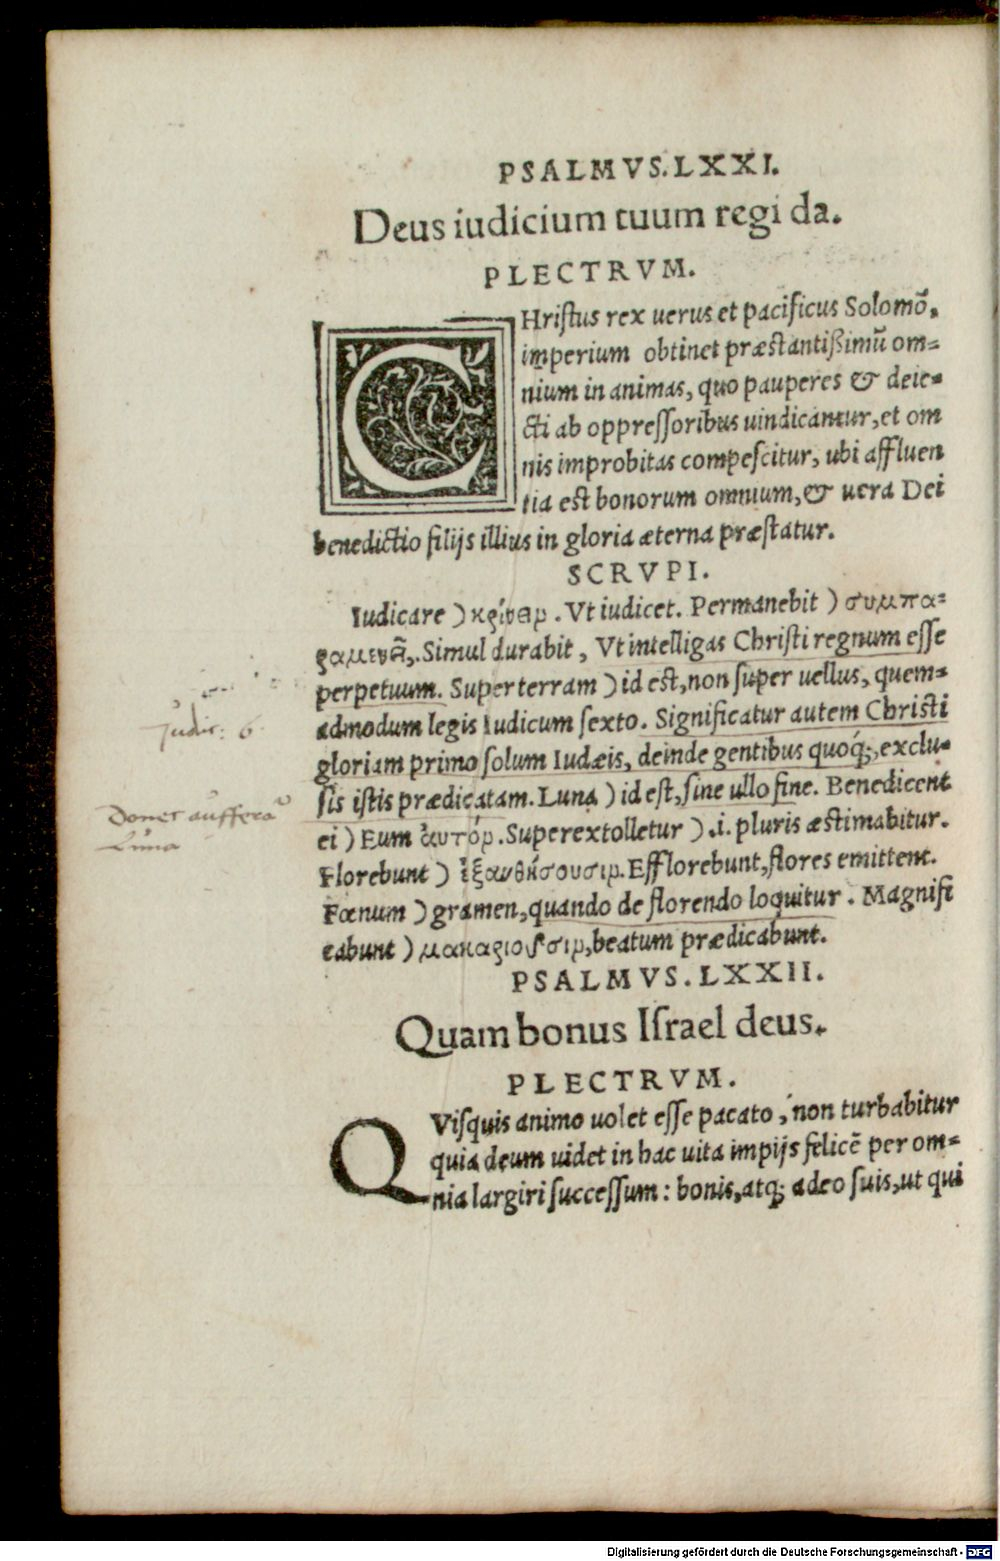 PSALMVS. LXXI.
Deus iudicium tuum regi da.
PLECTRVM.
CHriſtus rex uerus et pacificus Solomō,
imperium obtinet præſtantißimū om=
nium in animas, quo pauperes & deie=
cti ab oppreſſoribus uindicantur, et om
nis improbitas compeſcitur, ubi affluen
tia eſt bonorum omnium, & uera Dei
benedictio filijs illius in gloria æterna præſtatur.
SCRVPI.
Iudicare) κρίνειν. Vt iudicet. Permanebit) συμπα=
ραμενεῖ. Simul durabit, Vt intelligas Chriſti regnum eſſe
perpetuum. Super terram) id eſt, non ſuper uellus, quem=
admodum legis Iudicum ſexto. Significatur autem Chriſti
Judic: 6.
gloriam primo ſolum Iudæis, deinde gentibus quoq;, exclu=
ſis iſtis prædicatam. Luna) id eſt, ſine ullo fine. Benedicent
Donec aufferatur
Luna
ei) Eum ἀυτόν. Superextolletur) .i. pluris æſtimabitur.
Florebunt) ἐξανθήσουσιν. Efflorebunt, flores emittent.
Fœnum) gramen, quando de florendo loquitur. Magnifi
cabunt) μακαριοῦσιν, beatum prædicabunt.
PSALMVS. LXXII.
Quam bonus Iſrael deus.
PLECTRVM.
QViſquis animo uolet eſſe pacato, non turbabitur
quia deum uidet in hac uita impijs felicē per om=
nia largiri ſucceſſum: bonis, atq; adeo ſuis, ut qui
Digitalisierung gefördert durch die Deutsche Forschungsgemeinschaft - DFG